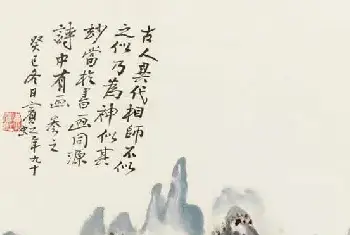 古人異代相師不似
之似乃為神似其
妙當於書画同源
詩中有画參之
癸巳冬日賓虹年九十